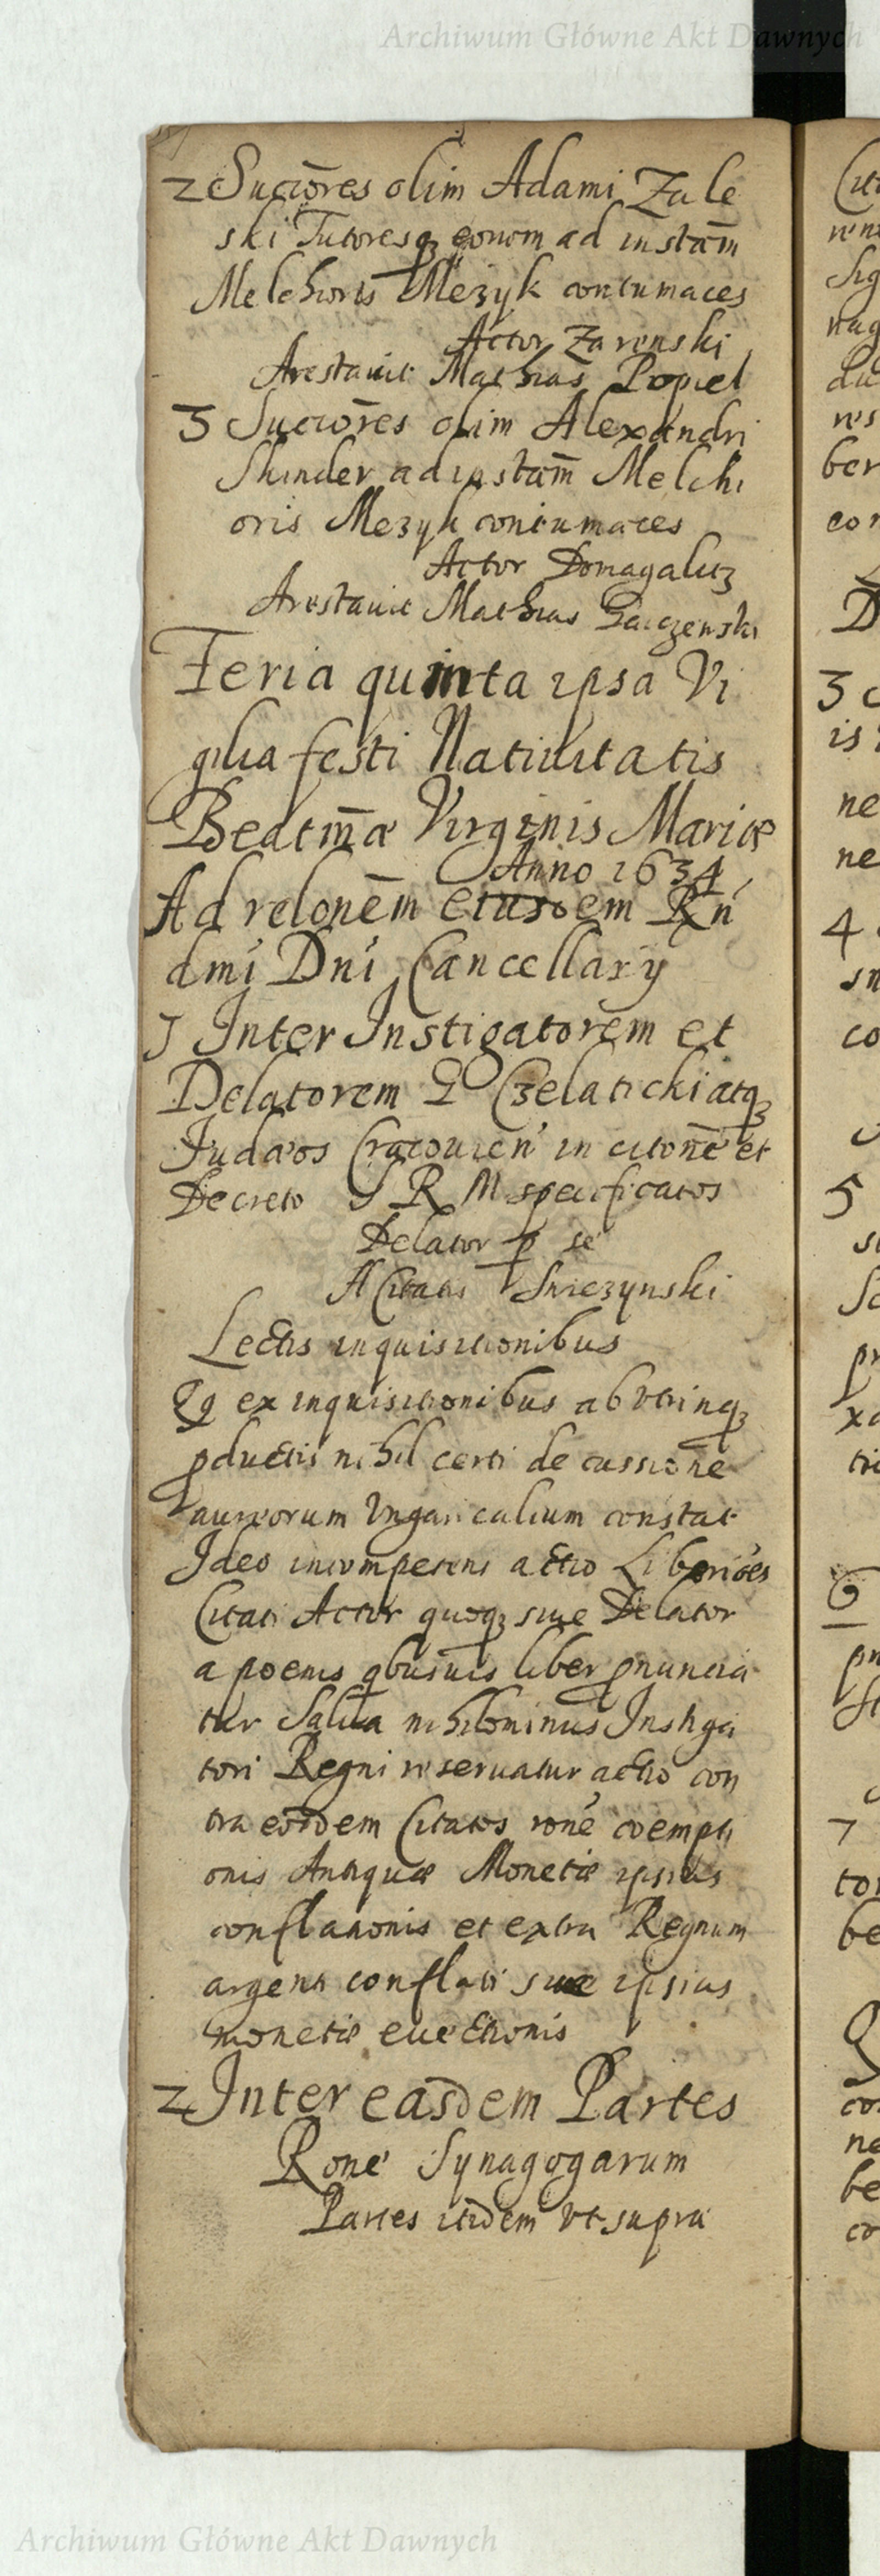 Archiwum Główne Akt Dawnych
2 Succōres olim Adami Zale
ski Tutoresq₃ eorum ad instam̄
Melchioris Mezyk contumaces
Actor Zarenski
Arestavit Mathias Popiel
3 Succōres olim Alexandri
Skinder ad instam̄ Melchi
oris Mezyk contumaces
Actor Domagalicz
Arestavit Mathias
Feria quinta ipsa Vi
gilia festi Nativitatis
Beatm̄æ Virginis Mariæ
Anno 1634
Ad relonēm eiusdem Rn
dmi Dni Cancellarij
1 Inter Instigatorem et
Delatorem G Czelatichi atq₃
Judæos Cracovien in citonē et
Decreto S R M specificatos
Delator p se
A Citatis
Lectis inquisitionibus
Qq ex inquisitionibus ab vtrinq₃
pductis nihil certi de cussionē
aureorum Vngaricalium constat
Ideo incompetens actio Liberi oēs
Citati Actor quoq₃ sive Delator
a poenis qbusvis liber pnuncia
tur Salva nihilominus Instiga
tori Regni reservatur actio con
tra eosdem Citatos ronē coempti
onis Antiquæ Monetæ ipsius
conflationis et extra Regnum
argenti conflati suæ ipsius
monetæ evectionis
2 Inter easdem Partes
Ronē Synagogarum
Partes itidem vt supra
Archiwum Główne Akt Dawnych